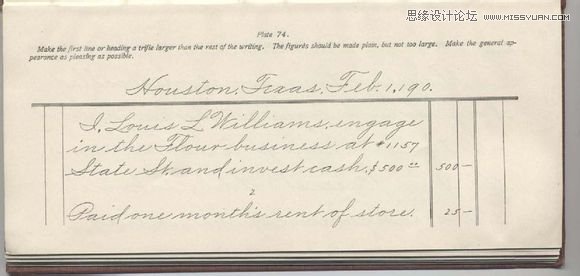 思缘设计论坛
WWW.MISSYUAN.COM
Plate 74.
Make the first line or heading a trifle larger than the rest of the writing. The figures should be made plain, but not too large. Make the general ap-
pearance as pleasing as possible.
Houston, Texas, Feb. 1, 190.
I, Louis L Williams, engage
in the Flour business at #1157
State St. and invest cash, $500 00 500 —
2
Paid one month's rent of store. 25 —